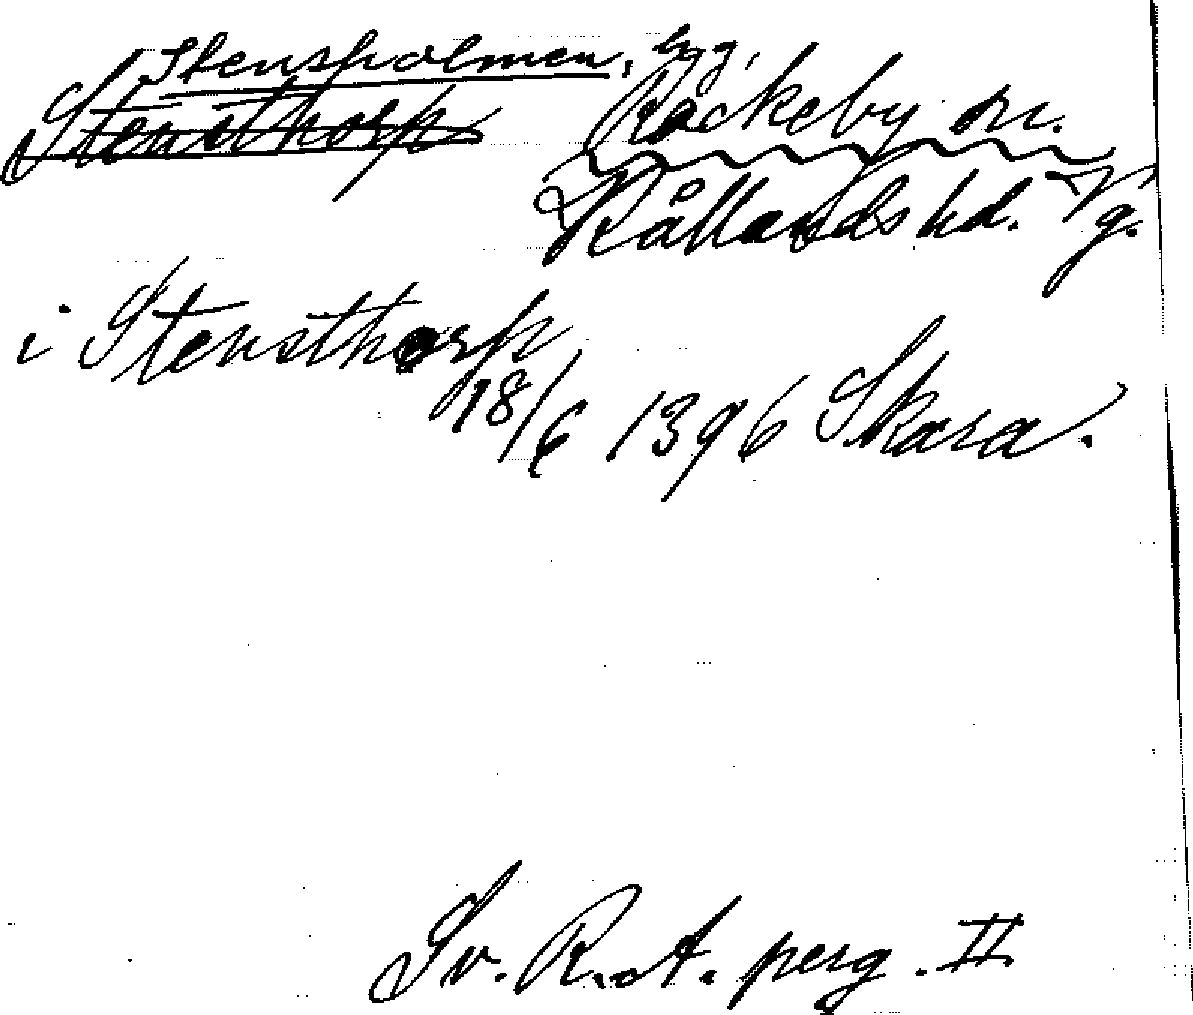 Stensholmen, bgg.
Stensthorp Råckeby sn.
Kållands hd. Vg.
i Stensthorp
18/6 1396 Skara.
Sv. R.A. perg. II